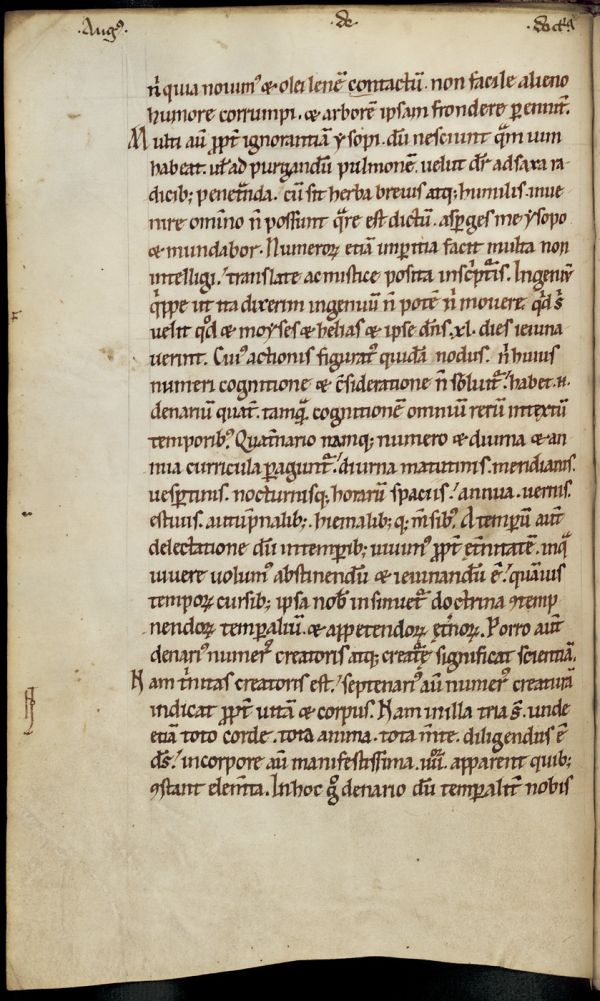 ·Augꝰ· ·de· ·doct̄a·
n̄ quia nouimꝰ & olei lenē contactū . non facile alieno
humore corrumpi . & arborē ipsam frondere perennē.
Multi aū ꝓpt̄ ignorantiā ysopi . dū nesciunt quam uim
habeat . ul̄ ad purgandū pulmonē . uelut dr̄ ad saxa ra-
dicib; penetranda . cū sit herba breuis atq; humilis . inue-
nire omnino n̄ possunt quare est dictū . asperges me ysopo
& mundabor . Numeroꝝ etiā imperitia facit multa non
intelligi . translate ac mistice posita in scripturis . Ingeniū
quippe ut ita dixerim ingenuū n̄ potē n̄ mouere . quid s̄
uelit qd̄ & moyses & helias & ipse dn̄s .xl. dies ieiuna
uerint . Cuiꝰ actionis figuratꝰ quidā nodus . n̄ huius
numeri cognitione & ꝯsideratione n̄ soluitur . habet n̄
denariū quater . tamquā cognitionē omniū rerū intextū
temporibꝰ . Quaternario namq; numero & diurna & an-
nua curricula peragunt̄ . diurna matutinis . meridianis .
uespertinis . nocturnisq; horarū spaciis . annua . uernis .
estiuis . autūpnalib; . hiemalib; q; m̄sibꝰ . A temporū aut̄
delectatione dū in temporib; uiuimꝰ ꝓpt̄ et̄nitatē . in qua
uiuere uolumꝰ abstinendū & ieiunandū ē . quāuis
temporꝝ cursib; ipsa nob̄ insinuetur doctrina ꝯtemp
nendoꝝ temporaliū . & appetendoꝝ et̄noꝝ . Porro aut̄
denariꝰ numerꝰ creatoris atq; creaturę significat scientiā .
Nam t̄nitas creatoris est . septenariꝰ aū numerꝰ creaturā
indicat ꝓpt̄ uitā & corpus . Nam in illa tria s̄ . unde
etiā toto corde . tota anima . tota m̄te . diligendus ē
d̄s . in corpore aū manifestissima .iiii. apparent quib;
ꝯstant elem̄ta . In hoc g° denario dū temporalit̄ nobis